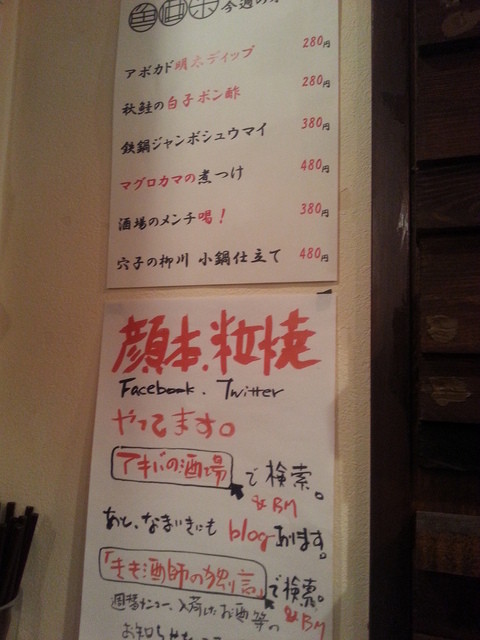 今週の
アボカド明太ディップ 280円
秋鮭の白子ポン酢 280円
鉄鍋ジャンボシュウマイ 380円
マグロカマの煮つけ 480円
酒場のメンチ喝！ 380円
穴子の柳川 小鍋仕立て 480円
顔本、粒焼
Facebook. Twitter
やってます。
アキバの酒場 で検索。
& BM
あと、なまいきにも blogあります。
「きき酒師の独り言」で検索。
& BM
週替メニュー、入荷したお酒等の
お知らせ